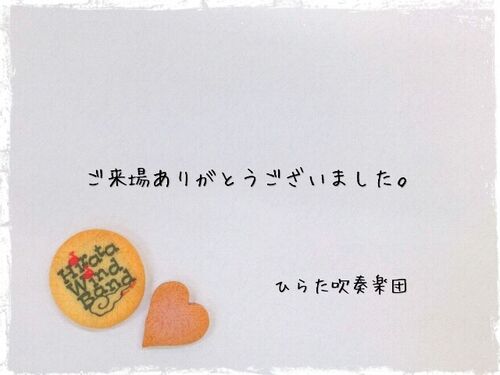 ご来場ありがとうございました。
Hirata
Wind
Band
ひらた吹奏楽団